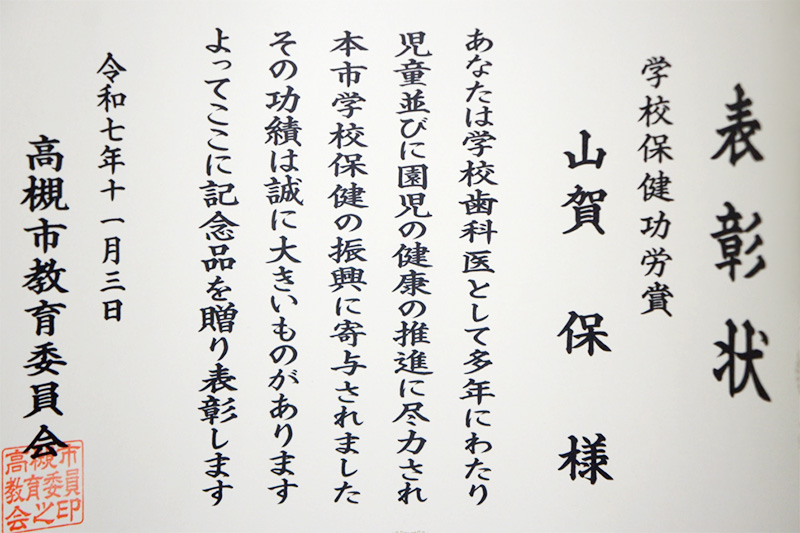 表彰状
学校保健功労賞
山賀保様
あなたは学校歯科医として多年にわたり
児童並びに園児の健康の推進に尽力され
本市学校保健の振興に寄与されました
その功績は誠に大きいものがあります
よってここに記念品を贈り表彰します
令和七年十一月三日
高槻市教育委員会
高槻市
教育委員
会之印